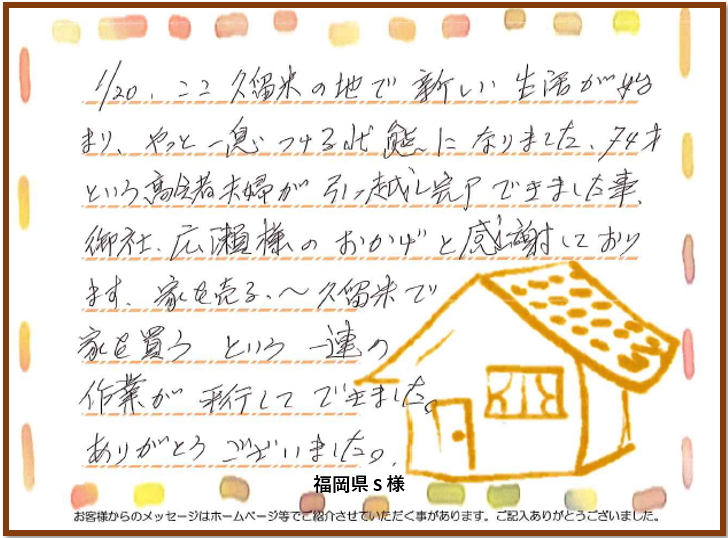 1/20、ここ久留米の地で新しい生活が始
まり、やっと一息つける状態になりました、74才
という高令者夫婦が引っ越し完了できました事、
御社、広瀬様のおかげと感謝しており
ます、家を売る、～久留米で
家を買うという一連の
作業が平行してできました。
ありがとうございました。
福岡県 s 様
お客様からのメッセージはホームページ等でご紹介させていただく事があります。ご記入ありがとうございました。